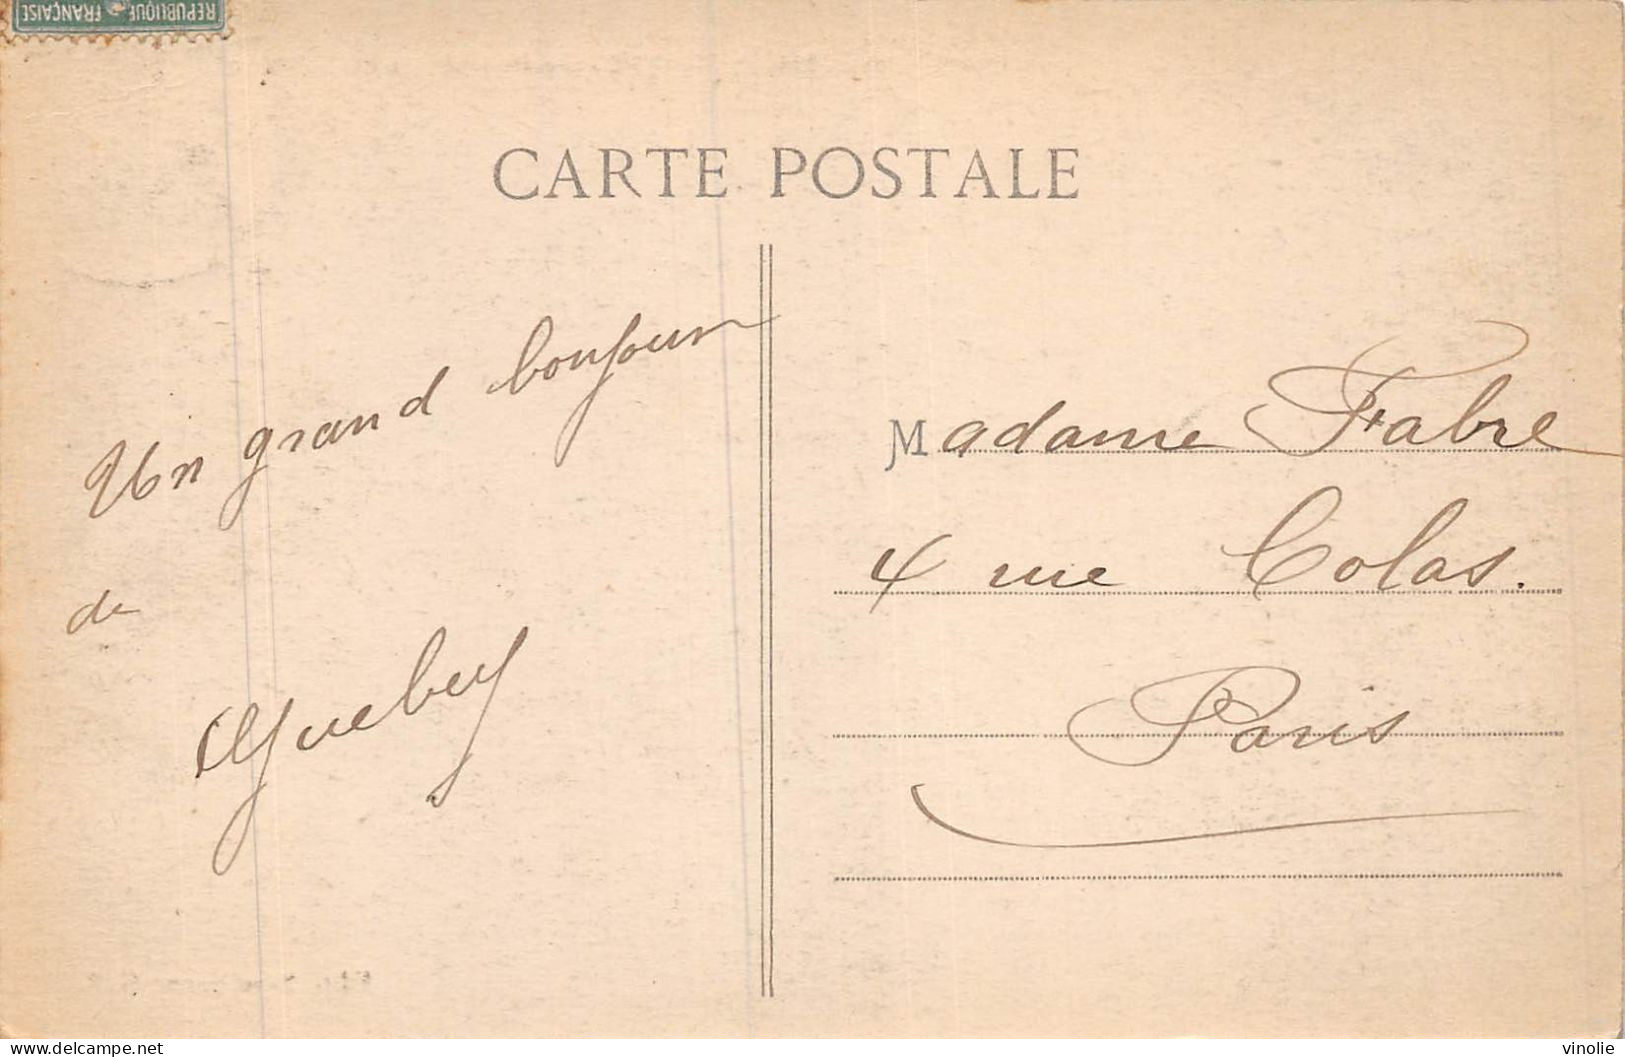 REPUBLIQUE FRANÇAISE
CARTE POSTALE
Un grand bonjour
de
Madame Fabre
4 rue Colas.
Paris
delcampe.net
vinolie